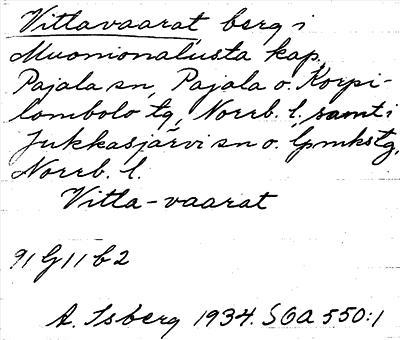 Vittavaarat berg i
Muonionalusta kap.
Pajala sn, Pajala o. Korpi-
lombolo tg, Norrb. l. samt i
Jukkasjärvi sn o. lpmkstg,
Norrb. l.
Vitta-vaarat
91 G 11 b 2
A. Isberg 1934. SGA 550:1